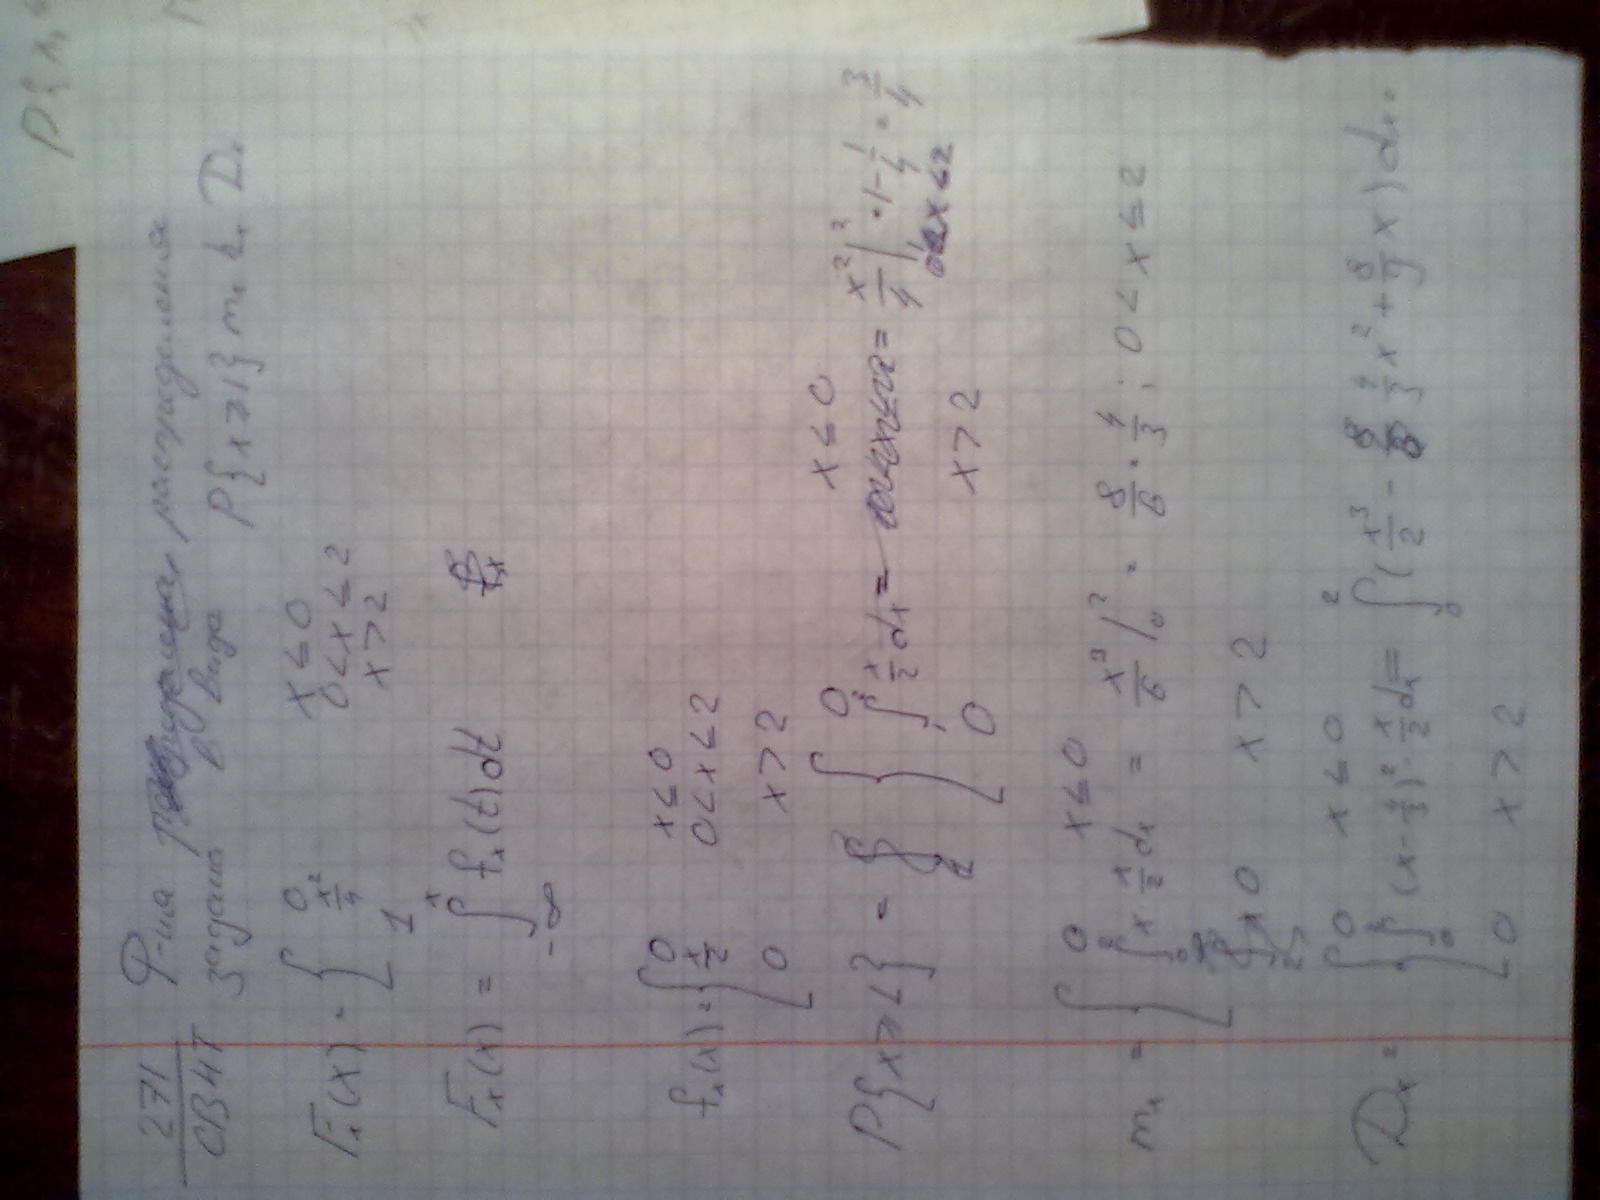 271 Ф-ия распределения
СВ4Т задана в виде P{x≥1} mₓ Dₓ
Fₓ(x) = { 0 x≤0
x²/4 0<x≤2
1 x>2
Fₓ(x) = ∫_{-∞}^{x} fₓ(t)dt
fₓ(x) = { 0 x≤0
x/2 0<x≤2
0 x>2
P{x≥1} = { 0 x≤0
∫ x/2 dx = = x²/4 |₁² = 1-1/4 = 3/4 x≤2
0 x>2
mₓ = { 0 x≤0
∫₀² x x/2 dx = x³/6 |₀² = 8/6 = 4/3; 0<x≤2
0 x>2
Dₓ = { 0 x≤0
∫₀² (x-4/3)² · x/2 dx = ∫₀² (x³/2 - 4/3 x² + 8/9 x) dx =
0 x>2
P{x